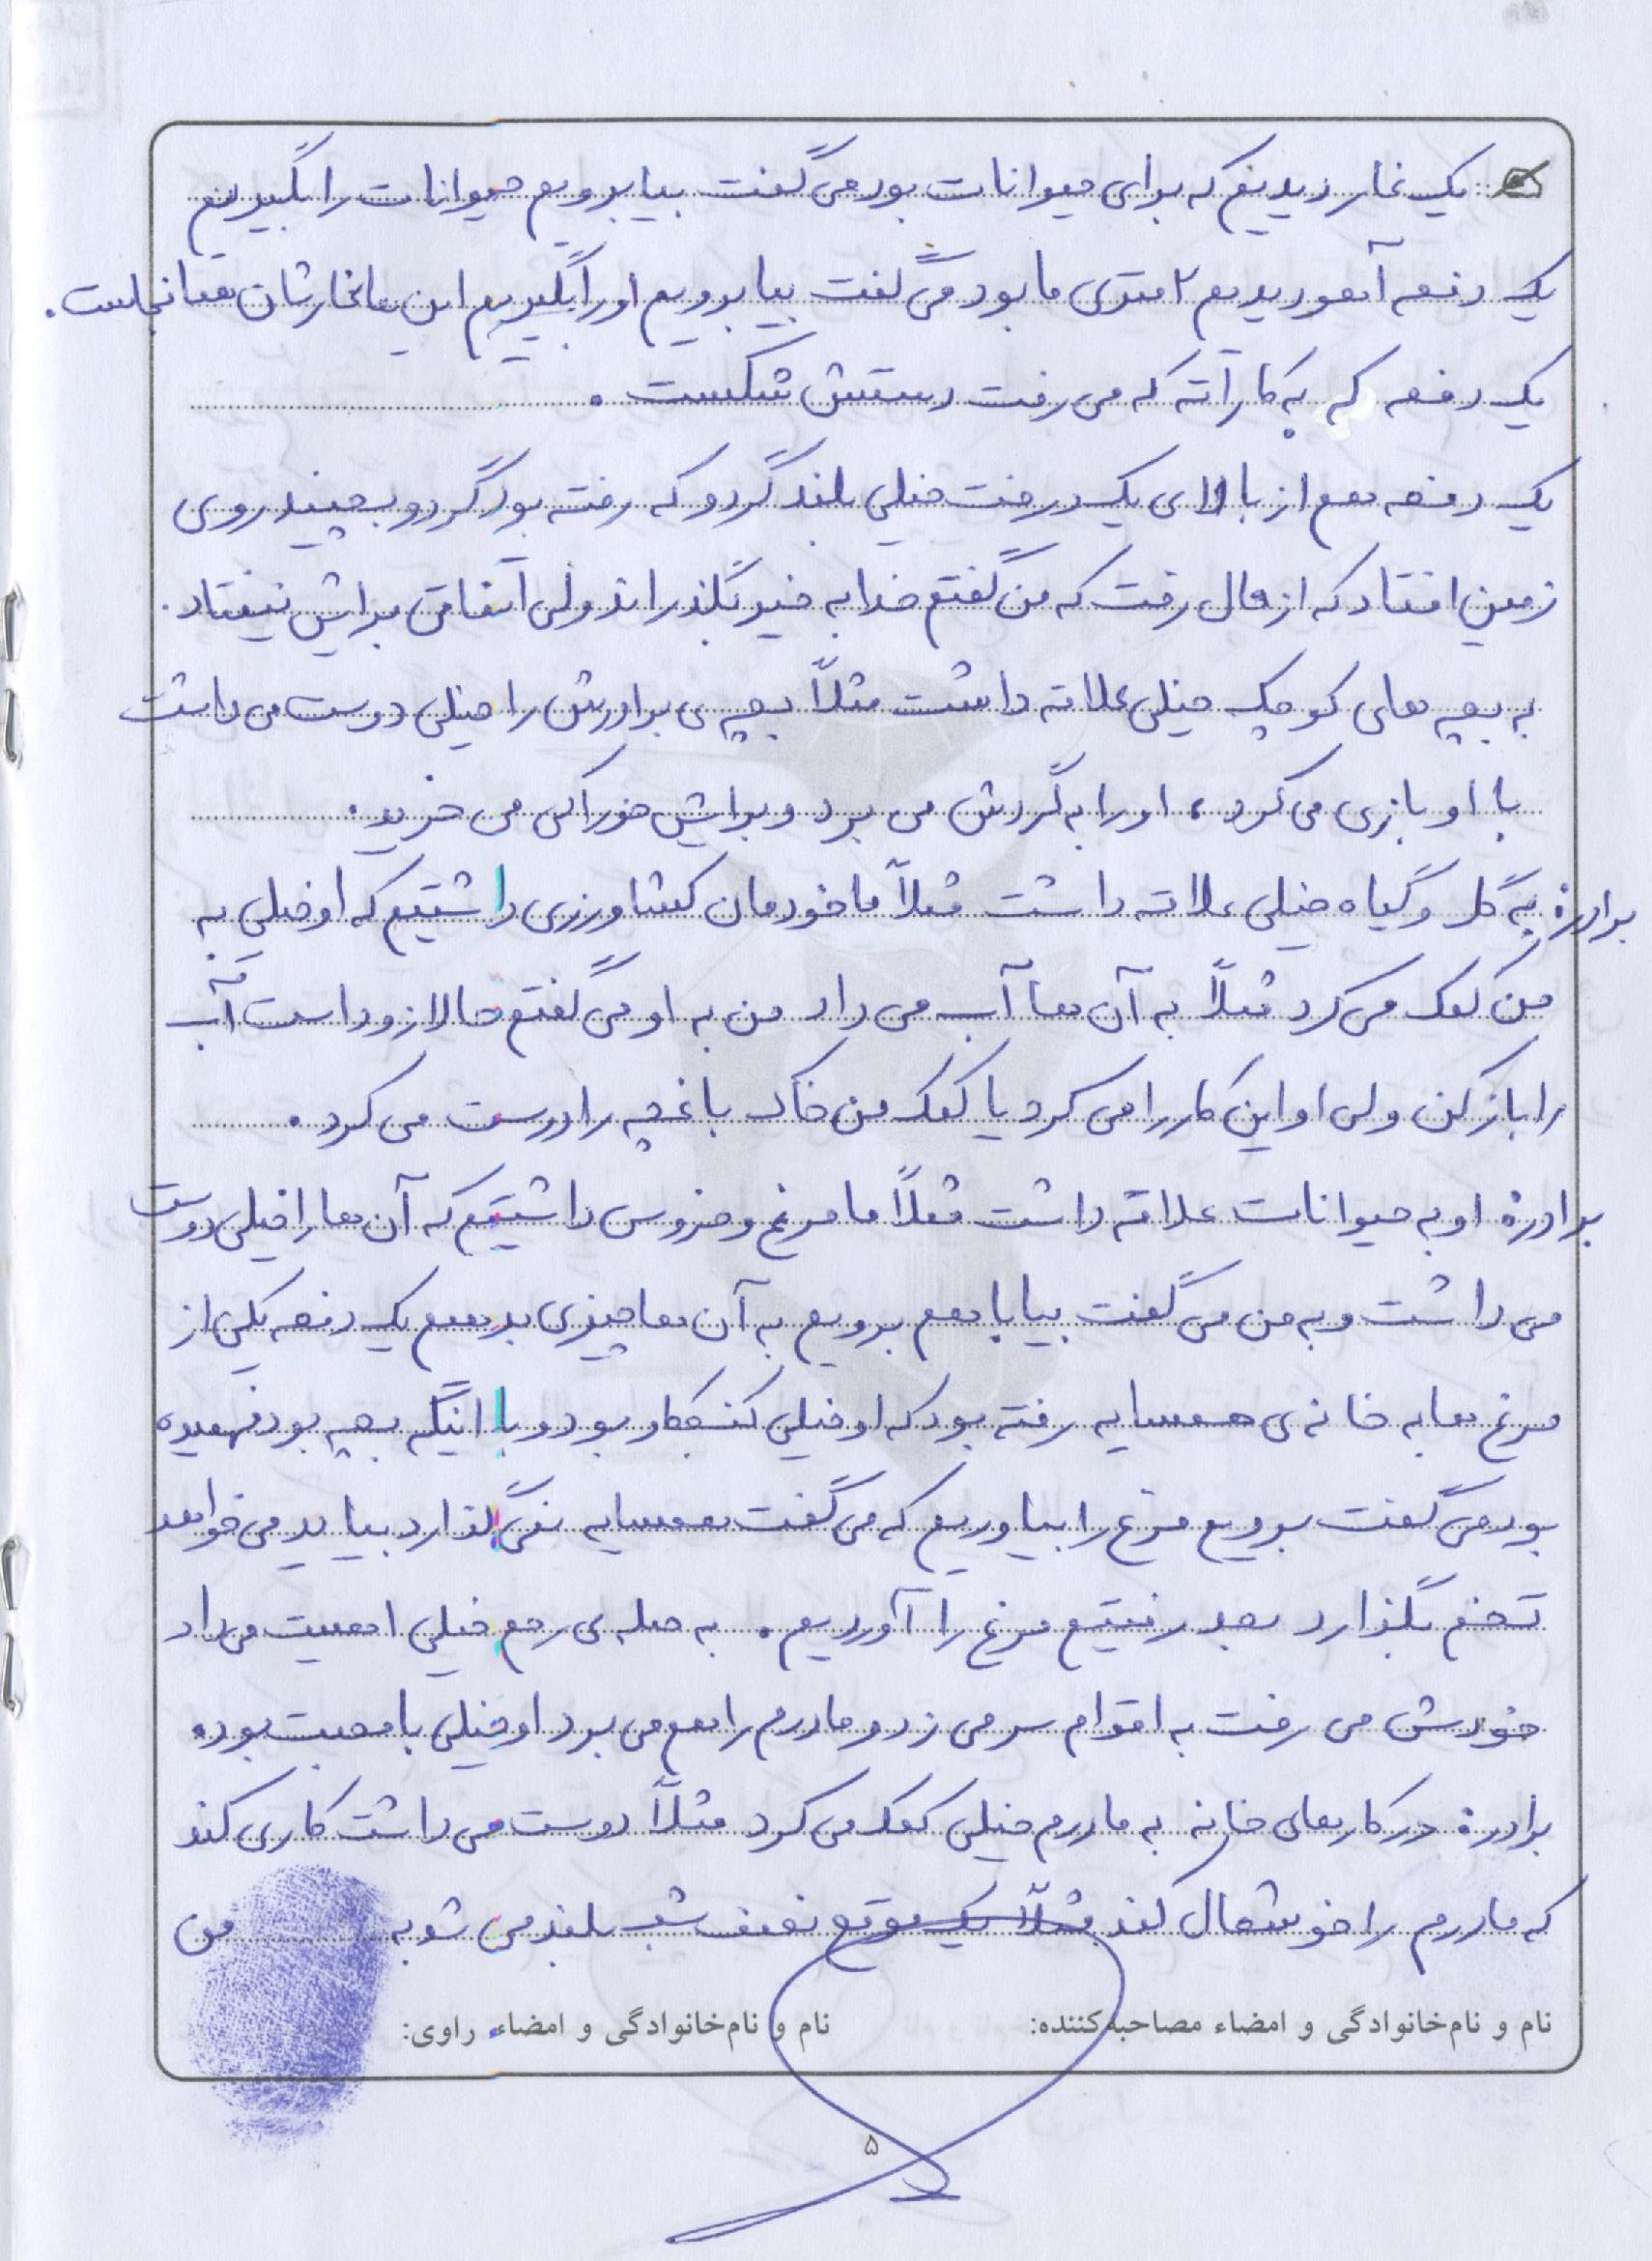 یک غار دیدیم که برای حیوانات بود می گفت بیا برویم حیوانات را بگیریم
یک دفعه آهو دیدیم ۲ متری ما بود می گفت بیا برویم او را بگیریم این ها غارشان همانجاست.
یک دفعه که به کاراته که می رفت دستش شکست.
یک دفعه هم از بالای یک درخت خیلی بلند گردو که رفته بود گردو بچیند روی
زمین افتاد که از حال رفت که من گفتم خدا به خیر بگذراند ولی اتفاقی برایش نیفتاد.
به بچه های کوچک خیلی علاقه داشت مثلاً بچه ی برادرش را خیلی دوست می داشت
با او بازی می کرد، او را به گردش می برد و برایش خوراکی می خرید.
برادر: به گل و گیاه خیلی علاقه داشت مثلاً ما خودمان کشاورزی داشتیم که او خیلی به
من کمک می کرد مثلاً به آن ها آب می داد من به او می گفتم حالا زود است آب
را باز کن ولی او این کار را می کرد یا کمک من خاک باغچه را درست می کرد.
برادر: او به حیوانات علاقه داشت مثلاً ما مرغ و خروس داشتیم که آن ها را خیلی دوست
می داشت و به من می گفت بیا با هم برویم به آن ها چیزی بدهیم یک دفعه یکی از
مرغ ها به خانه ی همسایه رفته بود که او خیلی کنجکاو بود و با اینکه بچه بود فهمیده
بود می گفت برویم مرغ را بیاوریم که می گفت همسایه نمی گذارد بیاید می خواهد
تخم بگذارد بعد رفتیم مرغ را آوردیم. به صله ی رحم خیلی اهمیت می داد
خودش می رفت به اقوام سر می زد و مادرم را هم می برد او خیلی با محبت بود.
برادر: در کارهای خانه به مادرم خیلی کمک می کرد مثلاً دوست می داشت کاری کند
که مادرم را خوشحال کند مثلاً یک موقع نصف شب بلند می شوبه من
نام و نام‌خانوادگی و امضاء مصاحبه‌کننده: نام و نام‌خانوادگی و امضاء راوی:
۵